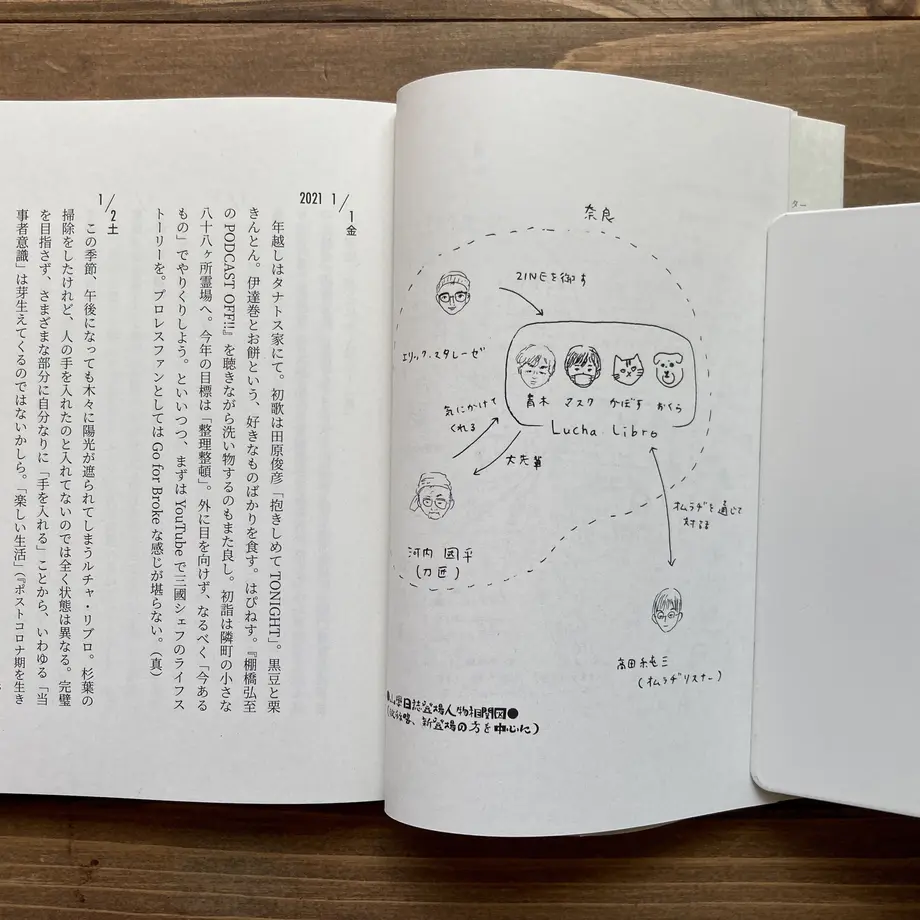 ター
奈良
ZINEを
エリック、スタレーゼ
青木 マスク かぼす おくら
Lucha Libro
気にかけて
くれる
大先輩
河内 國平
(刀匠)
オムラヂを通じて
対話
高田
(オムラヂリスナー)
日誌登場人物相関図●
略、新登場の方を中心に)
2021 1/1金
年越しはタナトス家にて。初歌は田原俊彦「抱きしめてTONIGHT」。黒豆と栗
きんとん。伊達巻とお餅という、好きなものばかりを食す。はぴねす。『棚橋弘至
のPODCAST OFF!!』を聴きながら洗い物するのもまた良し。初詣は隣町の小さな
八十八ヶ所霊場へ。今年の目標は「整理整頓」。外に目を向けず、なるべく「今ある
もの」でやりくりしよう。といいつつ、まずはYouTubeで三國シェフのライフス
トーリーを。プロレスファンとしてはGo for Brokeな感じが堪らない。(真)
1/2土
この季節、午後になっても木々に陽光が遮られてしまうルチャ・リブロ。杉葉の
掃除をしたけれど、人の手を入れたのと入れてないのでは全く状態は異なる。完璧
を目指さず、さまざまな部分に自分なりに「手を入れる」ことから、いわゆる「当
事者意識」は芽生えてくるのではないかしら。「楽しい生活」(『ポストコロナ期を生き